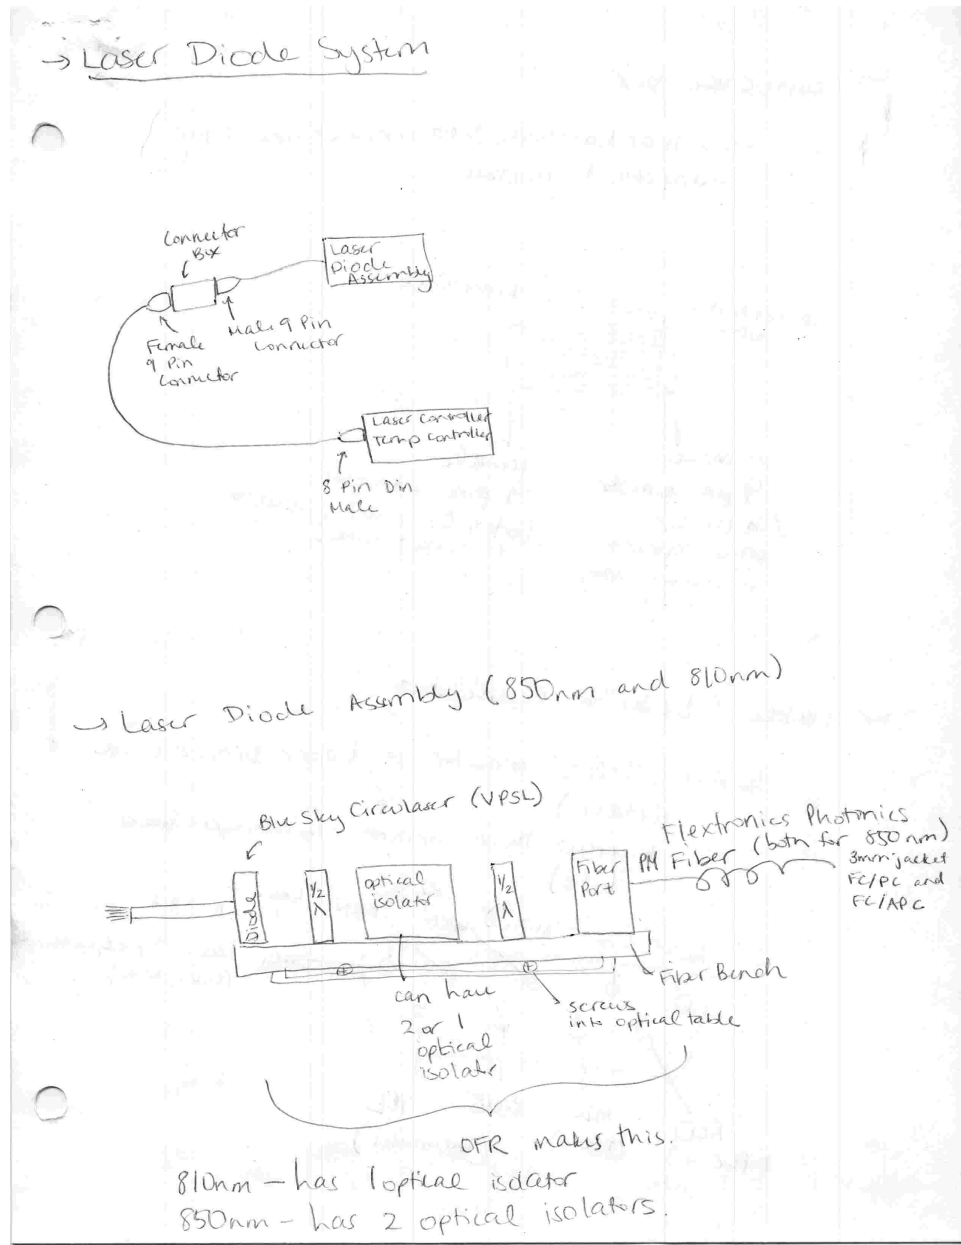 → Laser Diode System
Connector
Box
Laser
Diode
Assembly
Male 9 Pin
Connector
Female
9 Pin
Connector
Laser Controller
Temp Controller
8 Pin Din
Male
→ Laser Diode Assembly (850nm and 810nm)
Blue Sky Circulaser (VPSL)
Flextronics Photonics
PM Fiber (both for 850nm)
3mm jacket
FC/PC and
FC/APC
Diode
1/2
λ
optical
isolator
1/2
λ
Fiber
Port
Fiber Bench
can have
2 or 1
optical
isolatr
screws
into optical table
OFR makes this.
810nm – has 1 optical isolator
850nm – has 2 optical isolators.